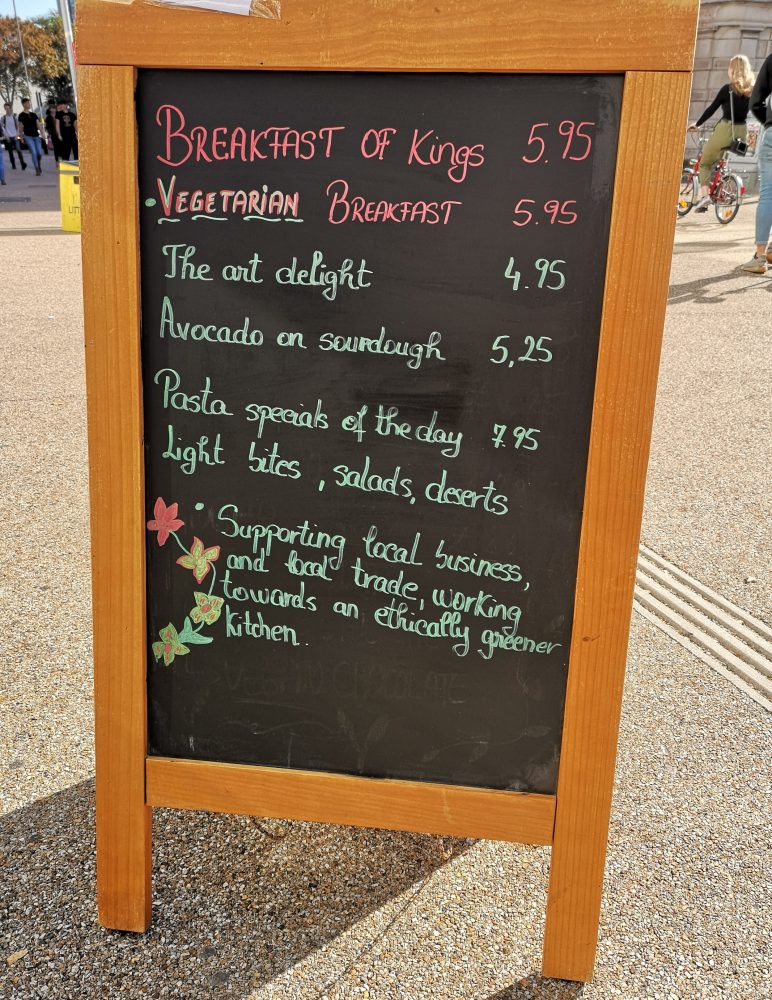 BREAKFAST OF Kings 5.95
VEGETARIAN BREAKFAST 5.95
The art delight 4.95
Avocado on sourdough 5,25
Pasta specials of the day 7.95
Light bites, salads, deserts
• Supporting local business,
and local trade, working
towards an ethically greener
kitchen.